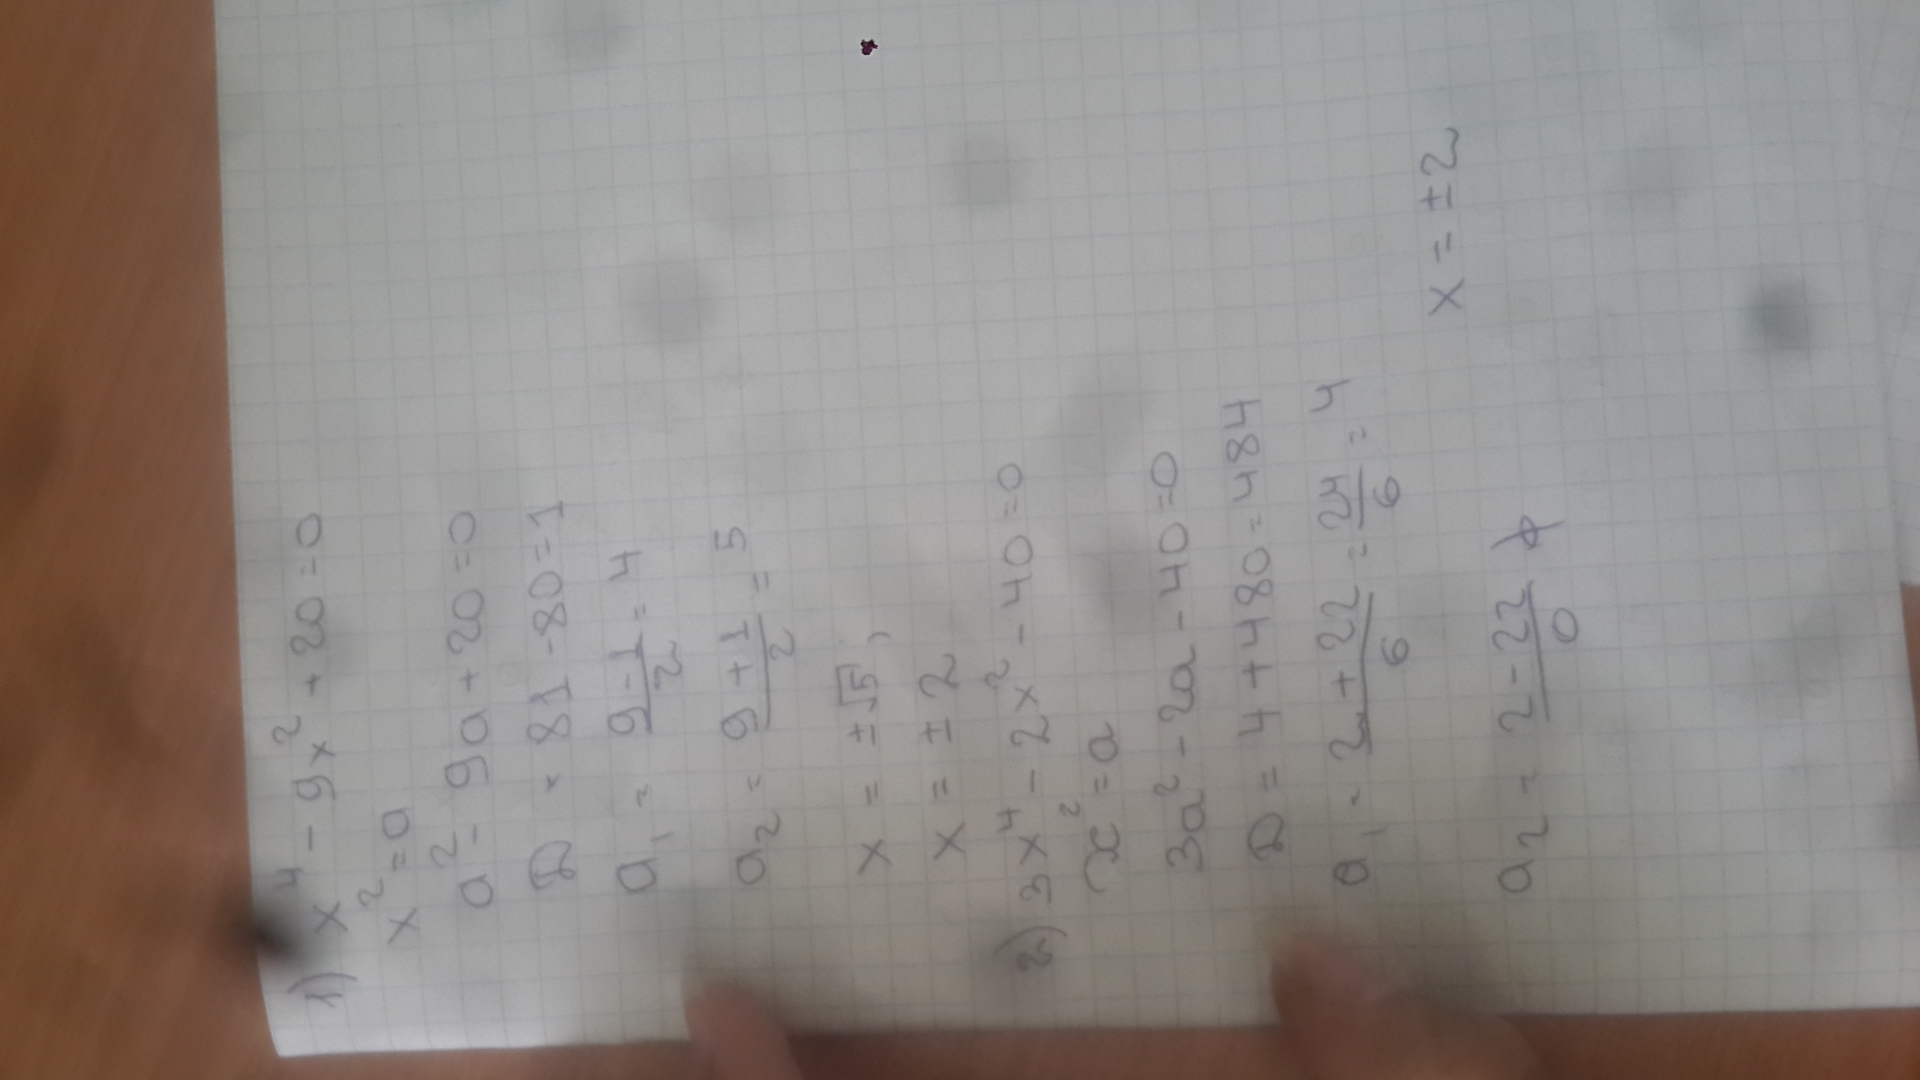 1) x⁴ - 9x² + 20 = 0
x² = a
a² - 9a + 20 = 0
D = 81 - 80 = 1
a₁ = (9-1)/2 = 4
a₂ = (9+1)/2 = 5
x = ±√5,
x = ±2
2) 3x⁴ - 2x² - 40 = 0
x² = a
3a² - 2a - 40 = 0
D = 4 + 480 = 484
a₁ = (2+22)/6 = 24/6 = 4
x = ±2
a₂ = (2-22)/0